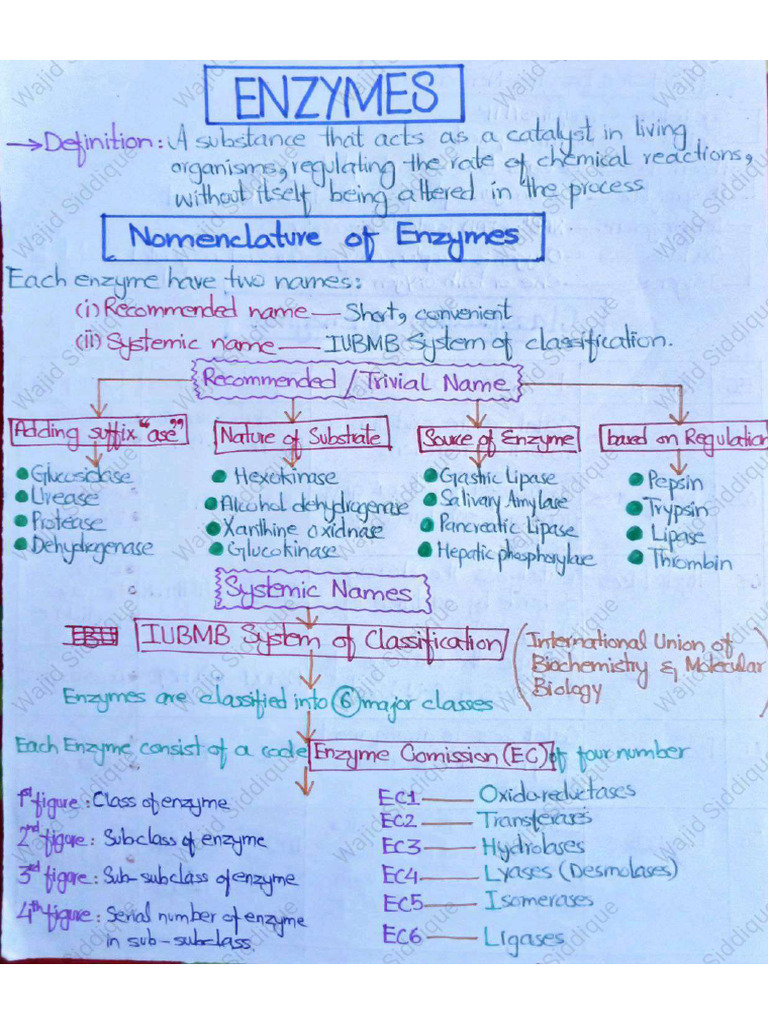 ENZYMES
→ Definition: A substance that acts as a catalyst in living
organisms, regulating the rate of chemical reactions,
without itself being altered in the process
Nomenclature of Enzymes
Each enzyme have two names:
(i) Recommended name — Short, convenient
(ii) Systemic name — IUBMB System of classification.
Recommended / Trivial Name
Adding suffix "ase"
Glucosidase
Urease
Protease
Dehydrogenase
Nature of Substrate
Hexokinase
Alcohol dehydrogenase
Xanthine oxidnase
Glucokinase
Source of Enzyme
Gastric Lipase
Salivary Amylase
Pancreatic Lipase
Hepatic phosphorylase
based on Regulation
Pepsin
Trypsin
Lipase
Thrombin
Systemic Names
IUBMB System of Classification
(International Union of
Biochemistry & Molecular
Biology)
Enzymes are classified into 6 major classes
Each Enzyme consist of a code Enzyme Comission (EC) of four number
1st figure: Class of enzyme
2nd figure: Subclass of enzyme
3rd figure: Sub-subclass of enzyme
4th figure: Serial number of enzyme
in sub-subclass.
EC1 — Oxidoreductases
EC2 — Transferases
EC3 — Hydrolases
EC4 — Lyases (Desmolases)
EC5 — Isomerases
EC6 — Ligases
Wajid Siddique